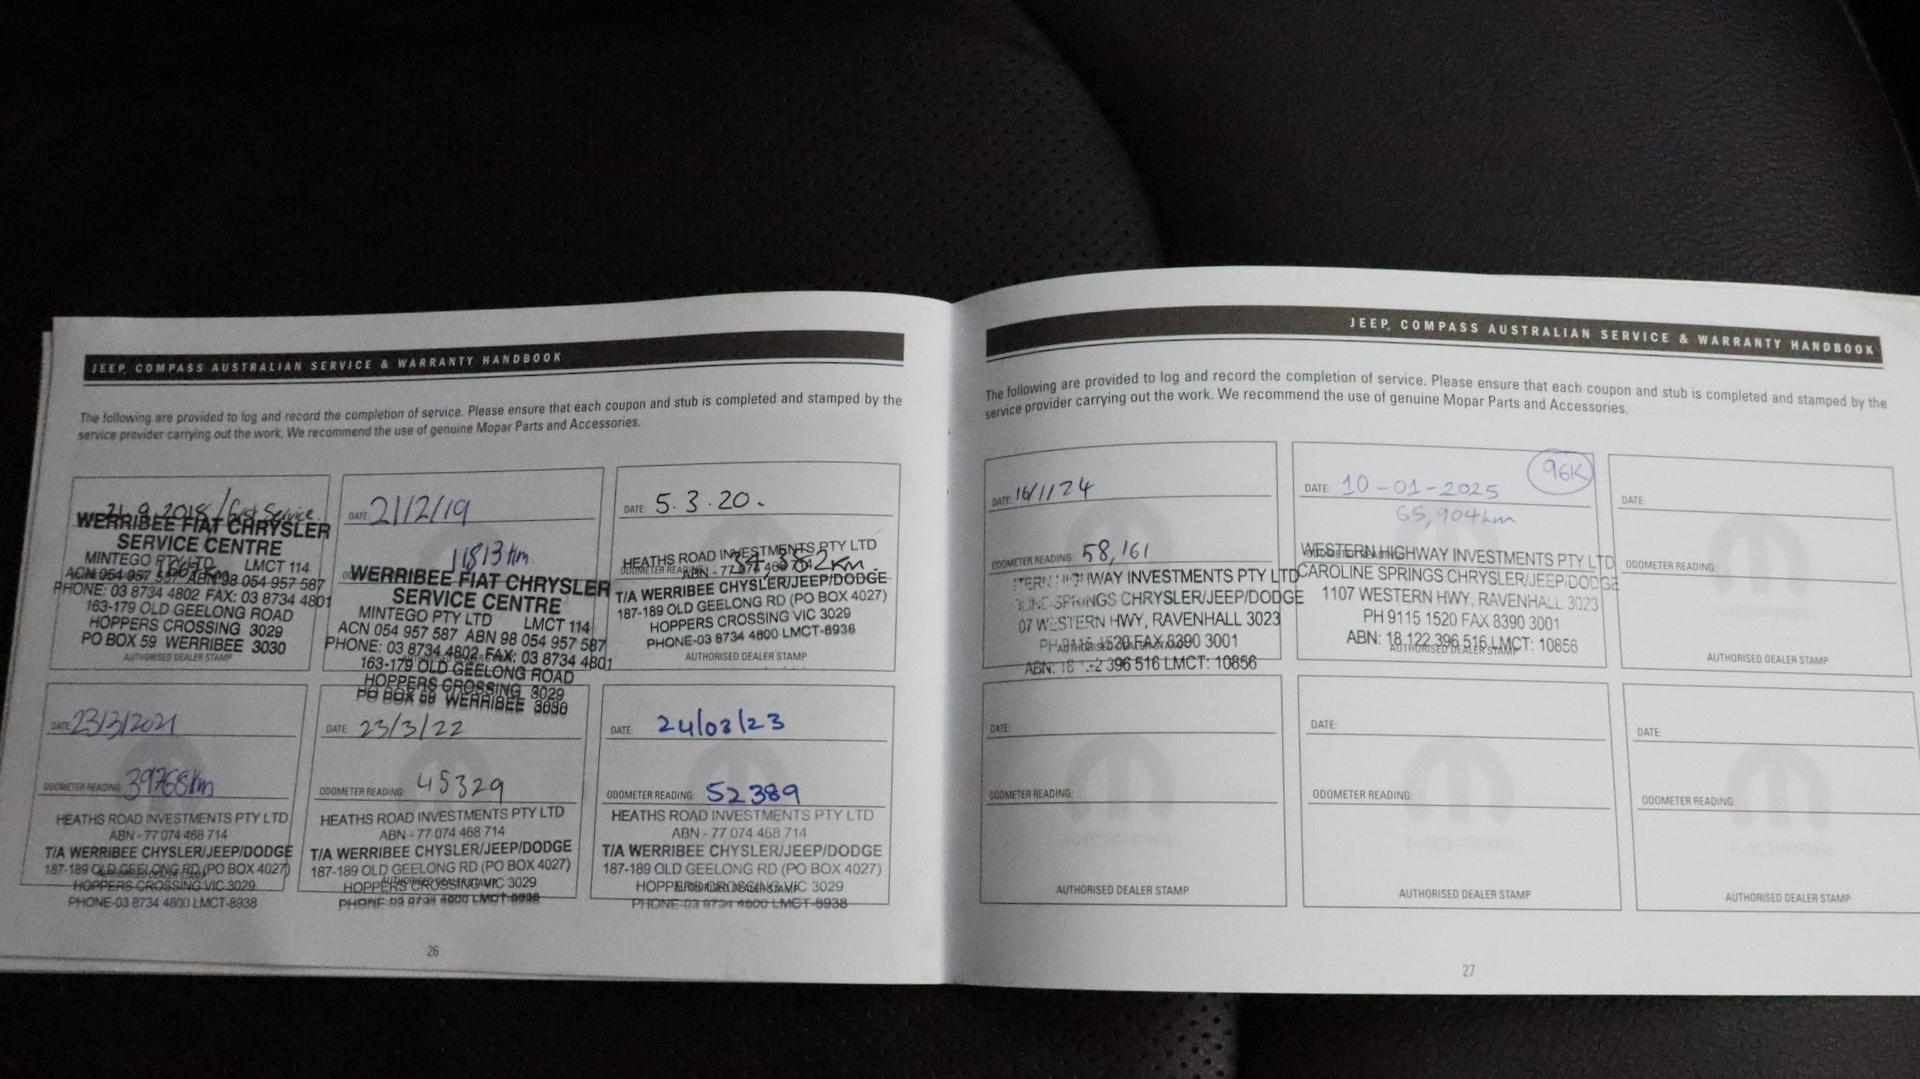 JEEP. COMPASS AUSTRALIAN SERVICE & WARRANTY HANDBOOK
The following are provided to log and record the completion of service. Please ensure that each coupon and stub is completed and stamped by the
service provider carrying out the work. We recommend the use of genuine Mopar Parts and Accessories.
21.9.2018/first Service.
WERRIBEE FIAT CHRYSLER
SERVICE CENTRE
MINTEGO PTY LTD LMCT 114
ACN 054 957 587 ABN 98 054 957 587
PHONE: 03 8734 4802 FAX: 03 8734 4801
163-179 OLD GEELONG ROAD
HOPPERS CROSSING 3029
PO BOX 59 WERRIBEE 3030
AUTHORISED DEALER STAMP
DATE: 21/2/19
11813 km.
WERRIBEE FIAT CHRYSLER
SERVICE CENTRE
MINTEGO PTY LTD LMCT 114
ACN 054 957 587 ABN 98 054 957 587
PHONE: 03 8734 4802 FAX: 03 8734 4801
163-179 OLD GEELONG ROAD
HOPPERS CROSSING 3029
PO BOX 59 WERRIBEE 3030
DATE: 5.3.20.
HEATHS ROAD INVESTMENTS PTY LTD
ODOMETER READING:
ABN - 77 074 468 714
T/A WERRIBEE CHYSLER/JEEP/DODGE
187-189 OLD GEELONG RD (PO BOX 4027)
HOPPERS CROSSING VIC 3029
PHONE-03 8734 4800 LMCT-8938
AUTHORISED DEALER STAMP
DATE: 23/3/2021
ODOMETER READING: 39768km
HEATHS ROAD INVESTMENTS PTY LTD
ABN - 77 074 468 714
T/A WERRIBEE CHYSLER/JEEP/DODGE
187-189 OLD GEELONG RD (PO BOX 4027)
HOPPERS CROSSING VIC 3029
PHONE-03 8734 4800 LMCT-8938
DATE: 23/3/22
ODOMETER READING: 45329
HEATHS ROAD INVESTMENTS PTY LTD
ABN - 77 074 468 714
T/A WERRIBEE CHYSLER/JEEP/DODGE
187-189 OLD GEELONG RD (PO BOX 4027)
HOPPERS CROSSING VIC 3029
PHONE-03 8734 4800 LMCT-8938
DATE: 24/03/23
ODOMETER READING: 52389
HEATHS ROAD INVESTMENTS PTY LTD
ABN - 77 074 468 714
T/A WERRIBEE CHYSLER/JEEP/DODGE
187-189 OLD GEELONG RD (PO BOX 4027)
HOPPERS CROSSING VIC 3029
PHONE-03 8734 4800 LMCT-8938
26
JEEP. COMPASS AUSTRALIAN SERVICE & WARRANTY HANDBOOK
The following are provided to log and record the completion of service. Please ensure that each coupon and stub is completed and stamped by the
service provider carrying out the work. We recommend the use of genuine Mopar Parts and Accessories.
DATE: 16/1/24
ODOMETER READING: 58,161
HIGHWAY INVESTMENTS PTY LTD
SPRINGS CHRYSLER/JEEP/DODGE
07 WESTERN HWY, RAVENHALL 3023
PH 9115 1520 FAX 8390 3001
ABN: 396 516 LMCT: 10856
96K
DATE: 10-01-2025
65,904km
WESTERN HIGHWAY INVESTMENTS PTY LTD
CAROLINE SPRINGS CHRYSLER/JEEP/DODGE
1107 WESTERN HWY, RAVENHALL 3023
PH 9115 1520 FAX 8390 3001
ABN: 18 122 396 516 LMCT: 10856
AUTHORISED DEALER STAMP
DATE:
ODOMETER READING:
AUTHORISED DEALER STAMP
DATE:
ODOMETER READING:
MOPAR
AUTHORISED DEALER STAMP
DATE:
ODOMETER READING:
MOPAR
AUTHORISED DEALER STAMP
DATE:
ODOMETER READING:
MOPAR
AUTHORISED DEALER STAMP
27